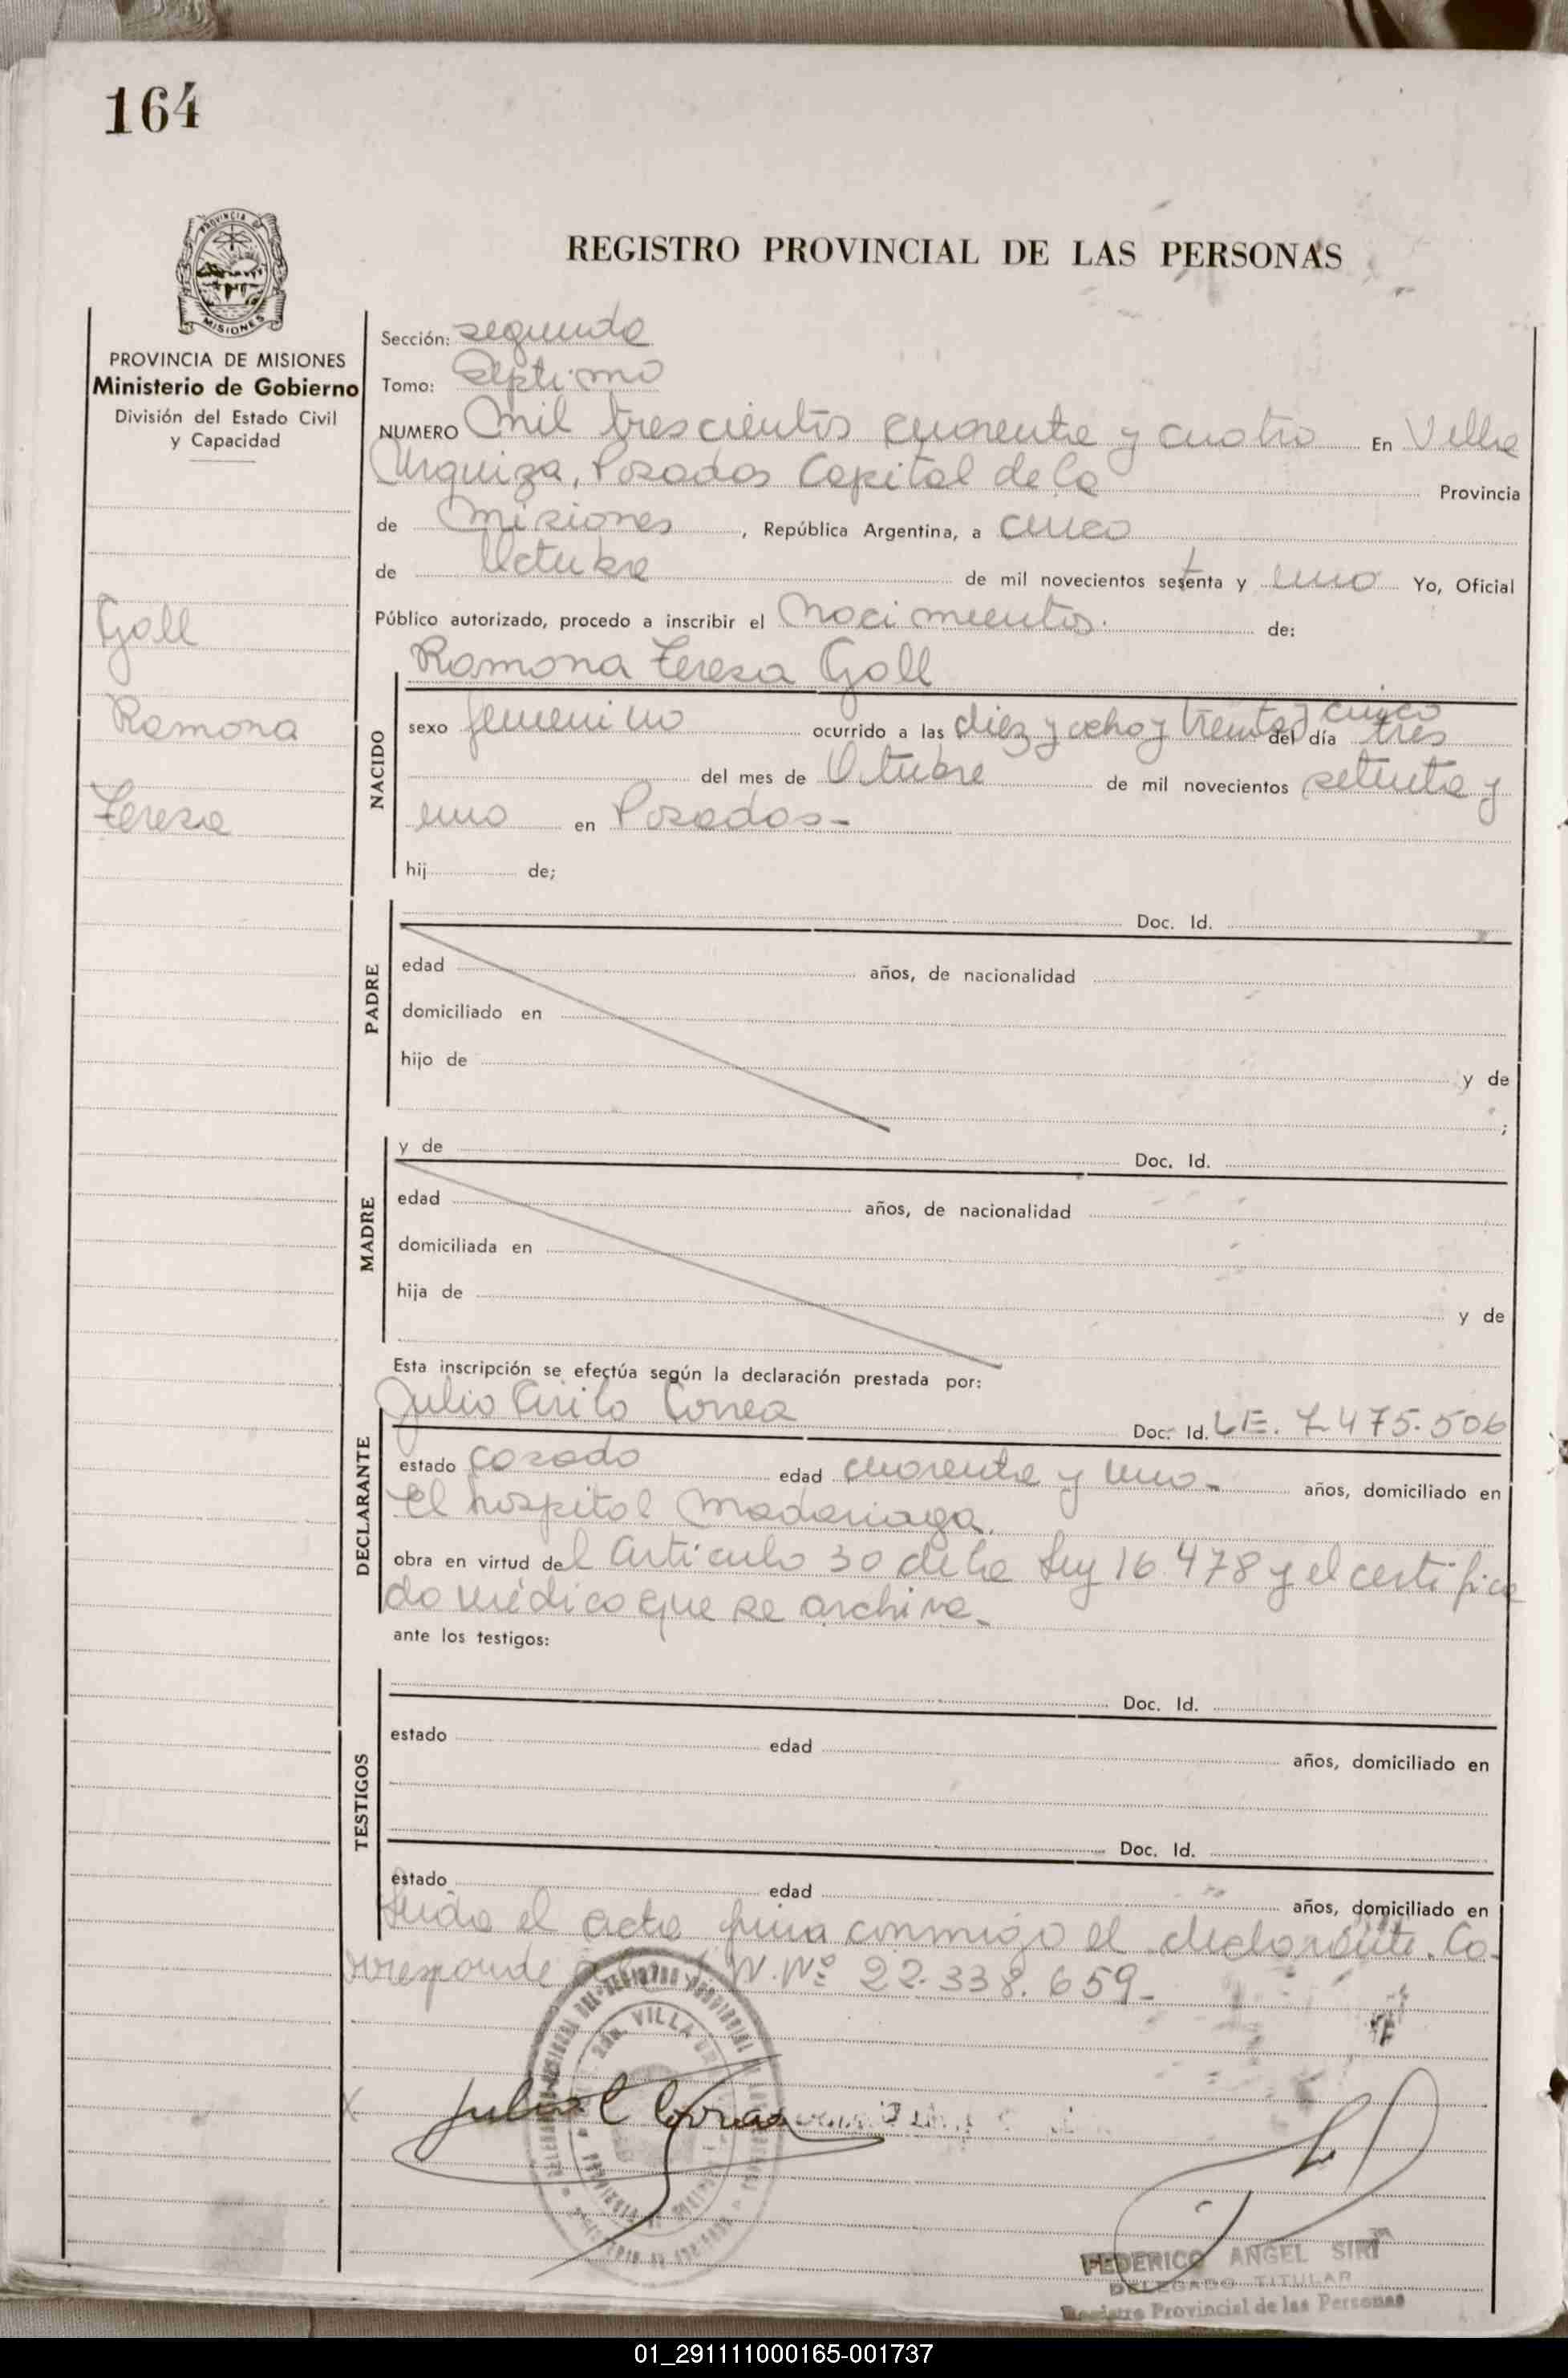 164
PROVINCIA DE
MISIONES
REGISTRO PROVINCIAL DE LAS PERSONAS
PROVINCIA DE MISIONES
Ministerio de Gobierno
División del Estado Civil
y Capacidad
Goll
Ramona
Teresa
Sección: segunda
Tomo: Septimo
NUMERO Mil trescientos cuarenta y cuatro En Villa
Urquiza, Posadas Capital de la Provincia
de Misiones, República Argentina, a cinco
de Octubre de mil novecientos sesenta y uno Yo, Oficial
Público autorizado, procedo a inscribir el Nacimientos. de:
Ramona Teresa Goll
NACIDO
sexo femenino ocurrido a las diez y ocho y treinta y cinco del día tres
del mes de Octubre de mil novecientos setenta y
uno en Posadas-
hij de;
PADRE
Doc. Id.
edad años, de nacionalidad
domiciliado en
hijo de y de
;
MADRE
y de Doc. Id.
edad años, de nacionalidad
domiciliada en
hija de y de
Esta inscripción se efectúa según la declaración prestada por:
DECLARANTE
Julio Cirilo Correa Doc. Id. LE. 7.475.506
estado casado edad cuarenta y uno- años, domiciliado en
el hospital Madariaga.
obra en virtud del Articulo 30 de la Ley 16.478 y el certifica
do médico que se archiva-
ante los testigos:
TESTIGOS
Doc. Id.
estado edad años, domiciliado en
Doc. Id.
estado edad años, domiciliado en
Leida el acta firma conmigo el declarante. Co-
rresponde N. Nº 22.338.659-
Julio C Correa
VILLA
FEDERICO ANGEL SIRI
DELEGADO TITULAR
Registro Provincial de las Personas
01_291111000165-001737